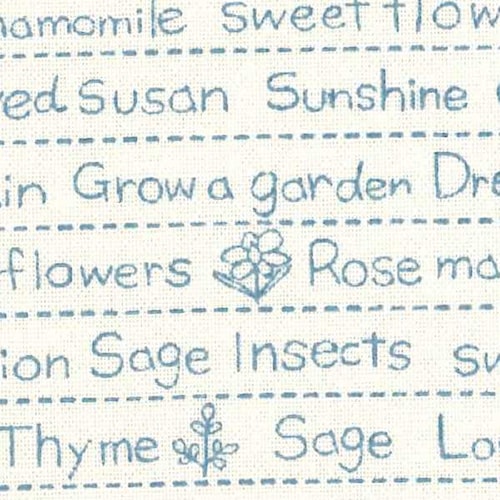 hamomile Sweet flow
yed Susan Sunshine
in Grow a garden Dre
flowers Rose ma
ion Sage Insects sw
Thyme Sage Lo